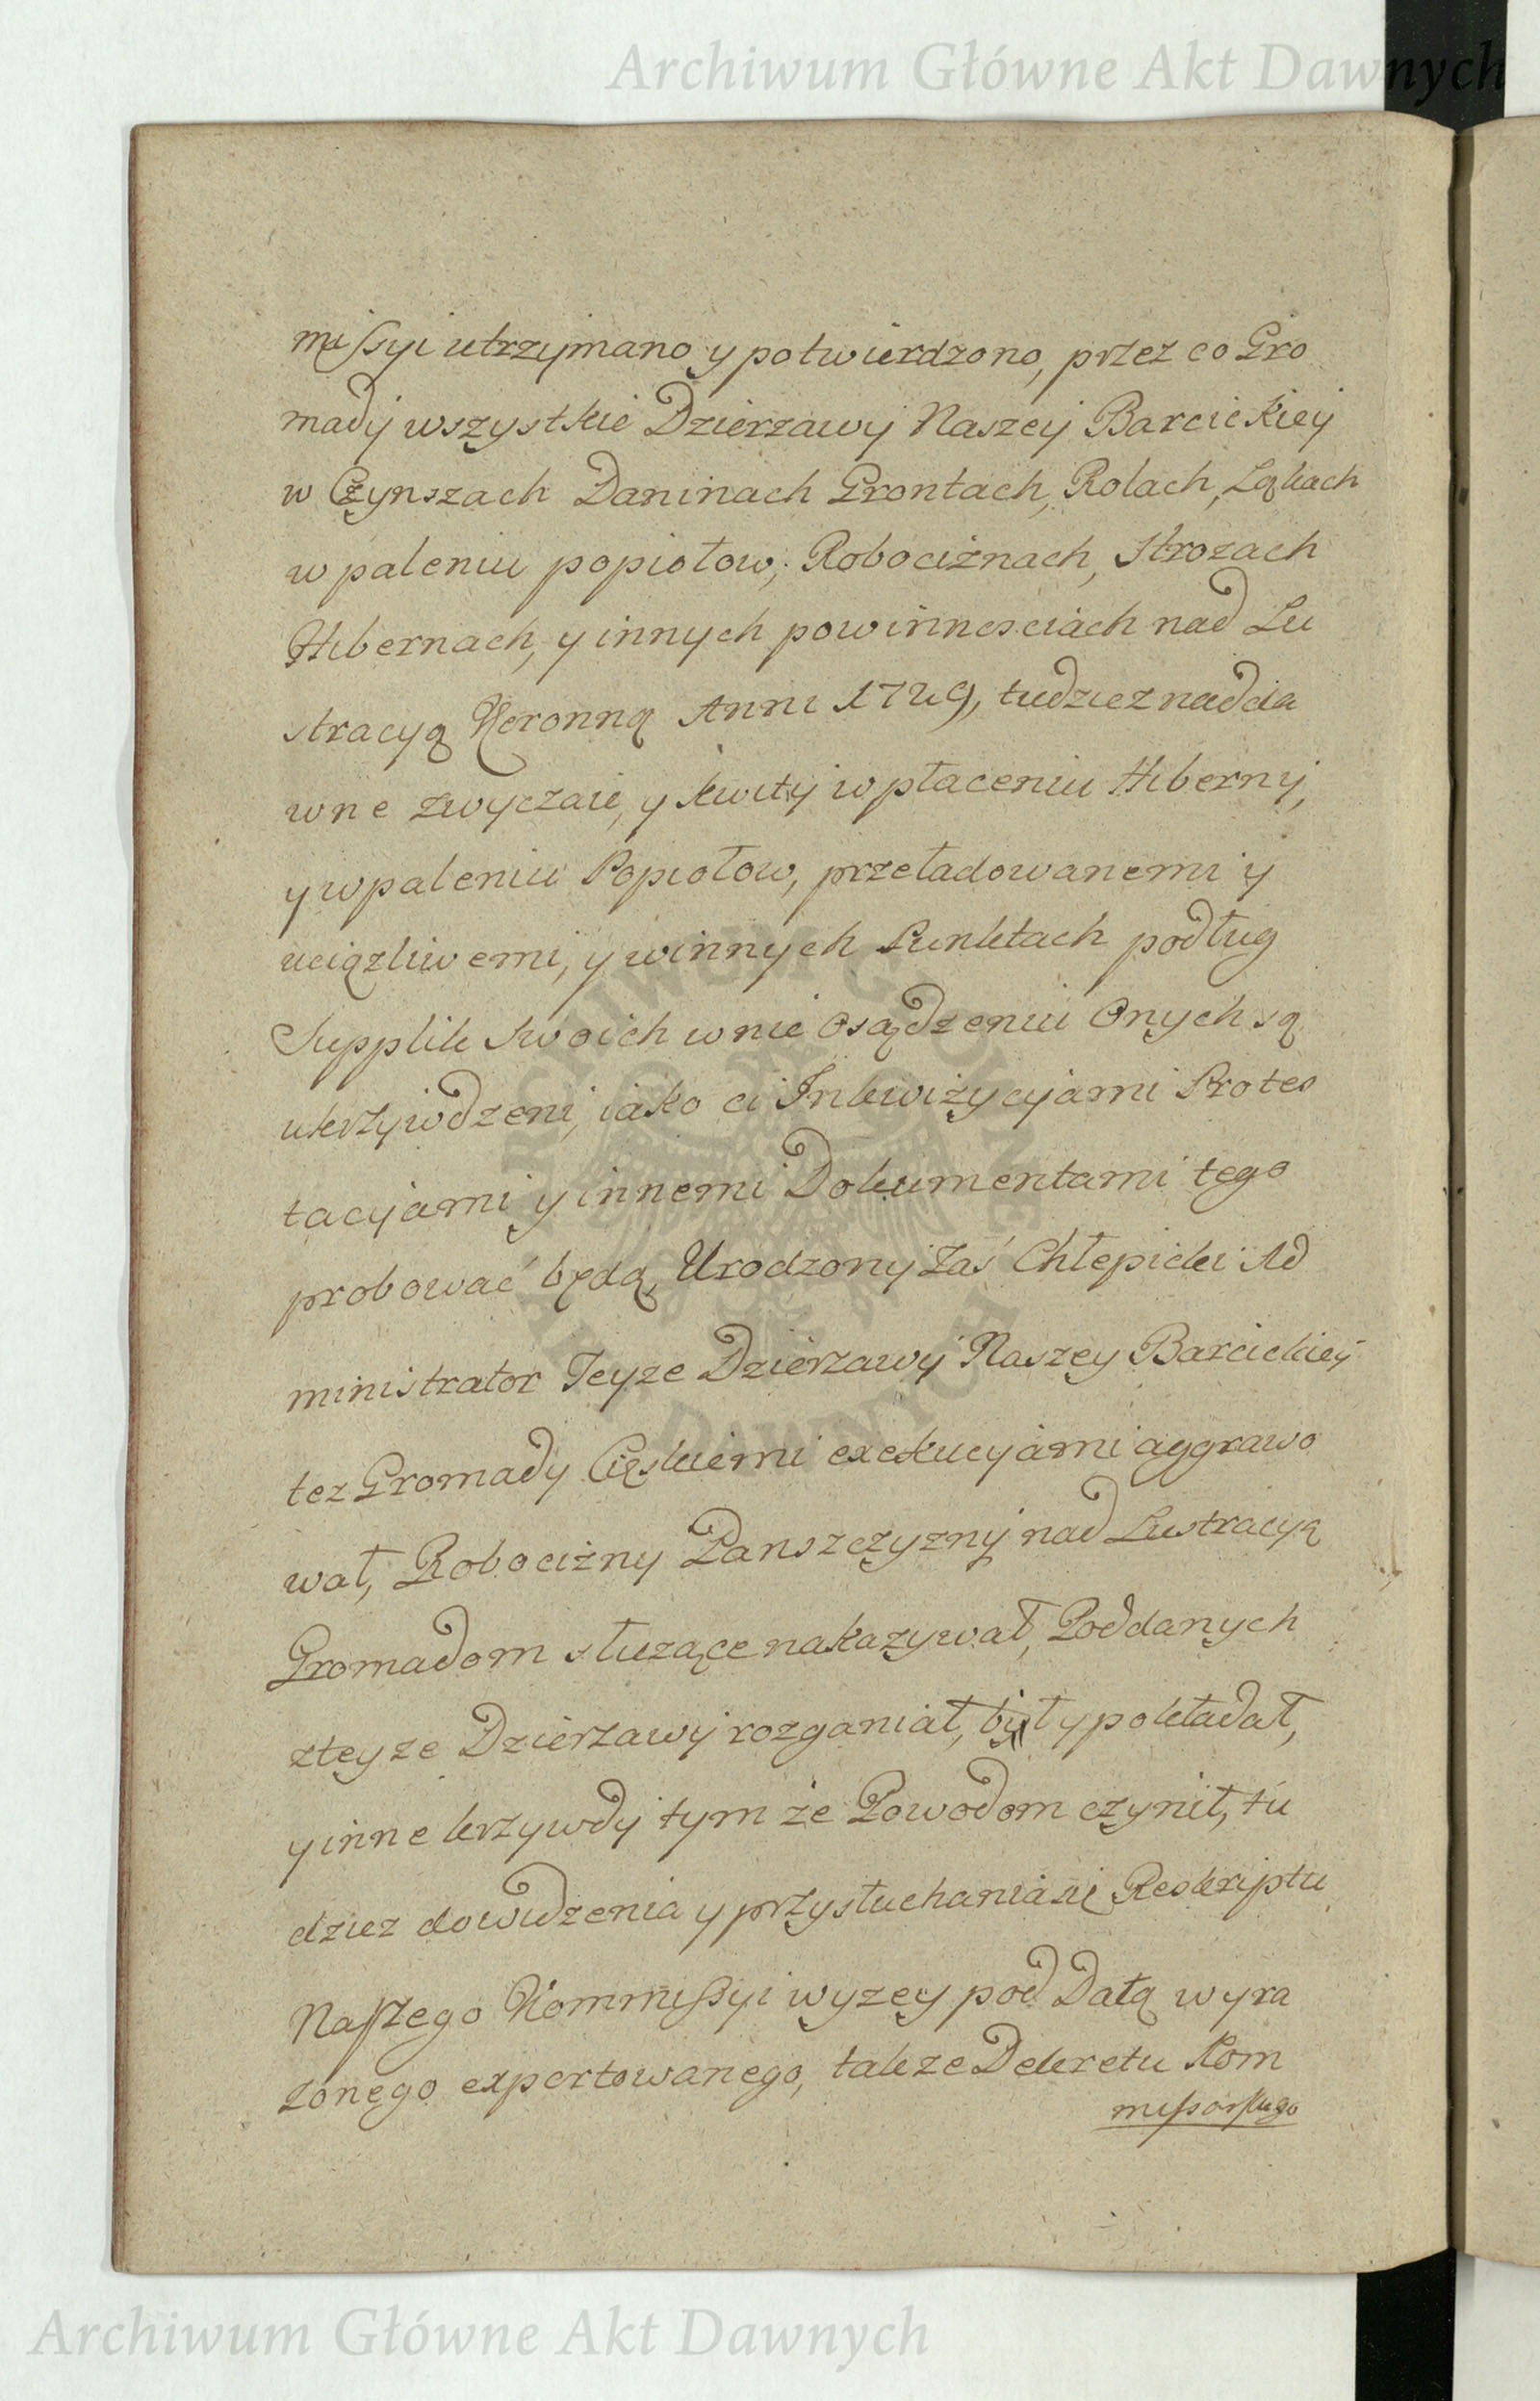 Archiwum Główne Akt Dawnych
missyi utrzymano y potwierdzono, przez co Gro
mady wszystkie Dzierzawy Naszey Barcickiey
w Czynszach Daninach Grontach, Rolach, Łąkach
w paleniu popiołow, Robociznach, Strozach
Hibernach, y innych powinnosciach nad Lu
stracyą Koronną Anni 1729, tudziez nad da
wne zwyczaie, y kwity w płaceniu Hiberny,
y w paleniu Popiołow, przeładowanemi y
uciązliwemi, y w innych Punktach podług
Supplik swoich w nie osądzeniu Onych są
ukrzywdzeni, iako ci Inkwizycyami Protes
tacyami y innemi Dokumentami tego
probować będą, Urodzony Zaś Chłepicki Ad
ministrator Teyze Dzierzawy Naszey Barcickiey
tez Gromady Cięskiemi exekucyami aggrawo
wał, Robocizny Panszczyzny nad Lustracyą
Gromadom słuzące nakazywał, Poddanych
zteyze Dzierzawy rozganiał, był y pokładał,
y inne krzywdy tym ze Powodom czynił, tu
dziez do widzenia y przysłuchania się Reskriptu
Naszego Kommissyi wyzey pod Datą wyra
zonego exportowanego, takze Dekretu Kom
missorskiego
ARCHIWUM GŁÓWNE AKT DAWNYCH
Archiwum Główne Akt Dawnych